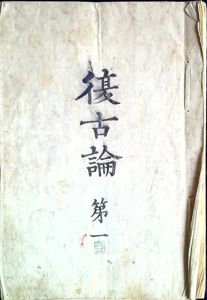 復古論
第一